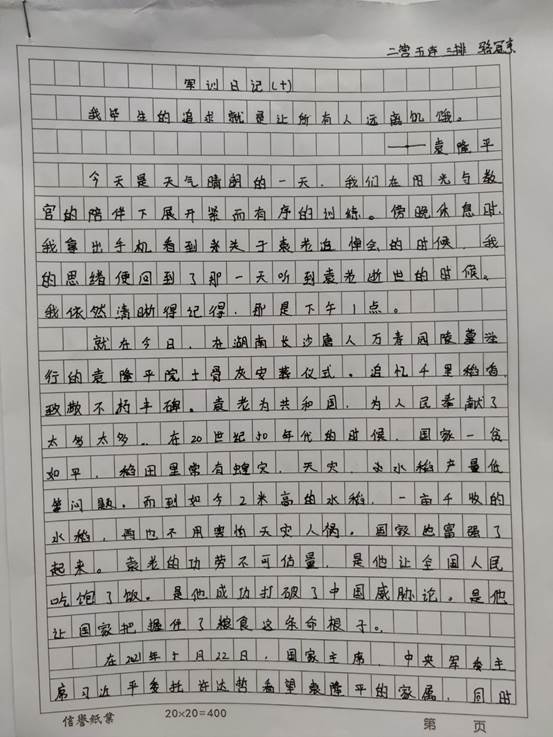 二营五连二排 骆冠东
军训日记(十)
我毕生的追求就是让所有人远离饥饿。
——袁隆平
今天是天气晴朗的一天，我们在阳光与教
官的陪伴下展开紧而有序的训练。傍晚休息时，
我拿出手机看到来关于袁老追悼会的时候，我
的思绪便回到了那一天听到袁老逝世的时候。
我依然清晰得记得，那是下午1点。
就在今日，在湖南长沙唐人万寿园陵墓举
行的袁隆平院士骨灰安葬仪式。追忆千里稻香，
致敬不朽丰碑。袁老为共和国，为人民奉献了
太多太多.. 在20世纪50年代的时候，国家一贫
如平，稻田里常有蝗灾，天灾，水稻产量低
等问题。而到如今2米高的水稻，一亩千收的
水稻，再也不用害怕天灾人祸。国家也富强了
起来。袁老的功劳不可估量，是他让全国人民
吃饱了饭。是他成功打破了中国威胁论。是他
让国家把握住了粮食这条命根子。
在2021年5月22日，国家主席，中央军委主
席习近平委托许达哲看望袁隆平的家属，同时
信誉纸业 20×20=400 第 页